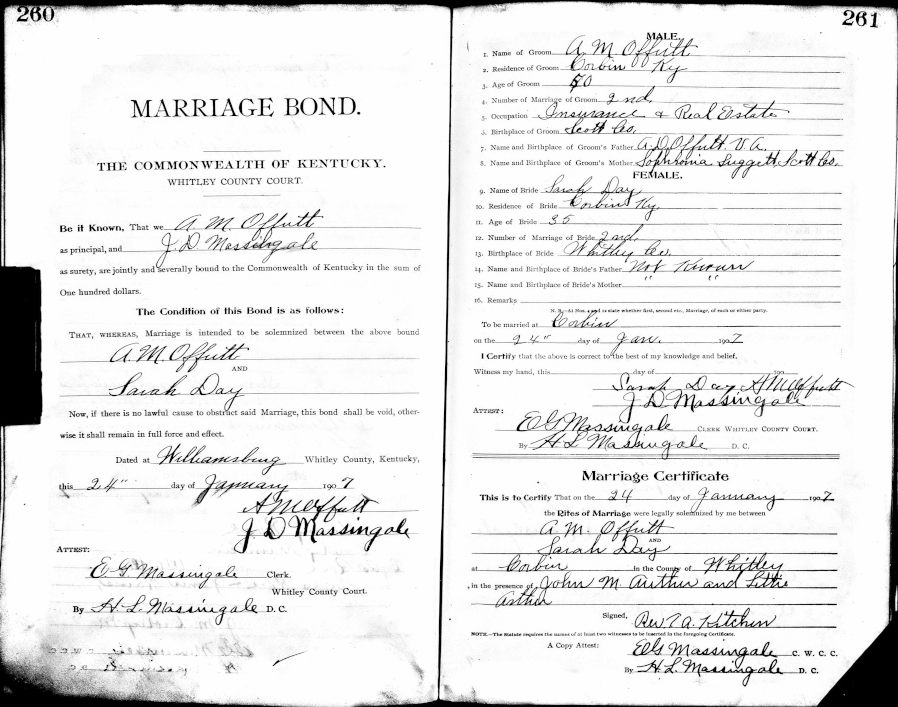 260
MARRIAGE BOND.
THE COMMONWEALTH OF KENTUCKY.
WHITLEY COUNTY COURT.
Be it Known, That we A. M. Offutt
as principal, and J. D. Massingale
as surety, are jointly and severally bound to the Commonwealth of Kentucky in the sum of
One hundred dollars.
The Condition of this Bond is as follows:
THAT, WHEREAS, Marriage is intended to be solemnized between the above bound
A. M. Offutt
AND
Sarah Day
Now, if there is no lawful cause to obstruct said Marriage, this bond shall be void, other-
wise it shall remain in full force and effect.
Dated at Williamsburg Whitley County, Kentucky,
this 24" day of January 1907
A M Offutt
J. D Massingale
ATTEST:
E. G. Massingale Clerk.
Whitley County Court.
By H. L. Massingale D. C.
261
MALE.
1. Name of Groom A. M. Offutt
2. Residence of Groom Corbin Ky
3. Age of Groom 50
4. Number of Marriage of Groom 2nd
5. Occupation Insurance & Real Estate
6. Birthplace of Groom Scott Co.
7. Name and Birthplace of Groom's Father A. D. Offutt. V. A.
8. Name and Birthplace of Groom's Mother Sophronia Suggett, Scott Co.
FEMALE.
9. Name of Bride Sarah Day
10. Residence of Bride Corbin Ky.
11. Age of Bride 35
12. Number of Marriage of Bride 2nd.
13. Birthplace of Bride Whitley Co.
14. Name and Birthplace of Bride's Father Not Known
15. Name and Birthplace of Bride's Mother " "
16. Remarks
N. B.—At Nos. 4 and 12 state whether first, second etc., Marriage, of each or either party.
To be married at Corbin
on the 24" day of Jan. 1907
I Certify that the above is correct to the best of my knowledge and belief.
Witness my hand, this day of 190
Sarah Day A M Offutt
J. D Massingale
ATTEST:
E G Massingale CLERK WHITLEY COUNTY COURT.
By H. L. Massingale D. C.
Marriage Certificate
This is to Certify That on the 24 day of January 1907
the Rites of Marriage were legally solemnized by me between
A. M. Offutt
AND
Sarah Day
at Corbin in the County of Whitley
in the presence of John M. Arthur and Littie
Arthur
Signed, Rev T. A. Kitchen
NOTE.—The Statute requires the names of at least two witnesses to be inserted in the foregoing Certificate.
A Copy Attest: E G Massingale C. W. C. C.
By H. L. Massingale D. C.